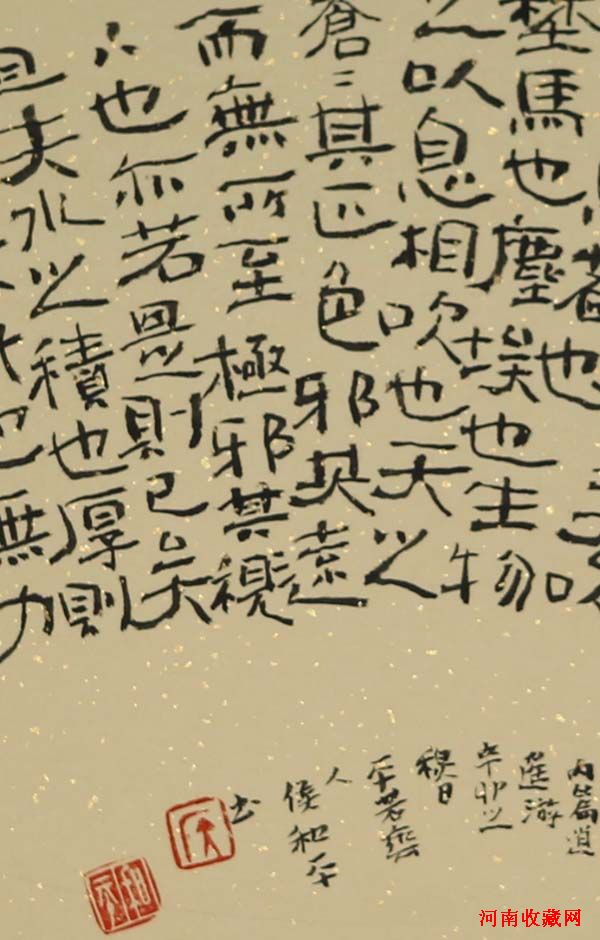 者也
埜馬也塵埃也生物
之以息相吹也天之
蒼〻其正色邪其遠
而無所至極邪其視
下也亦若是則已矣
且夫水之積也厚則
也無力
内篇逍
遙游
辛卯之
日
人
侯和平
书
河南收藏网